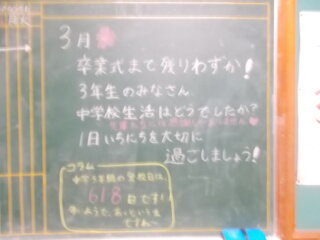 3月
卒業式まで残りわずか!
3年生のみなさん
中学校生活はどうでしたか?
1日いちにちを大切に
過ごしましょう!
コラム
中学3年間の登校日は、
618日です!!